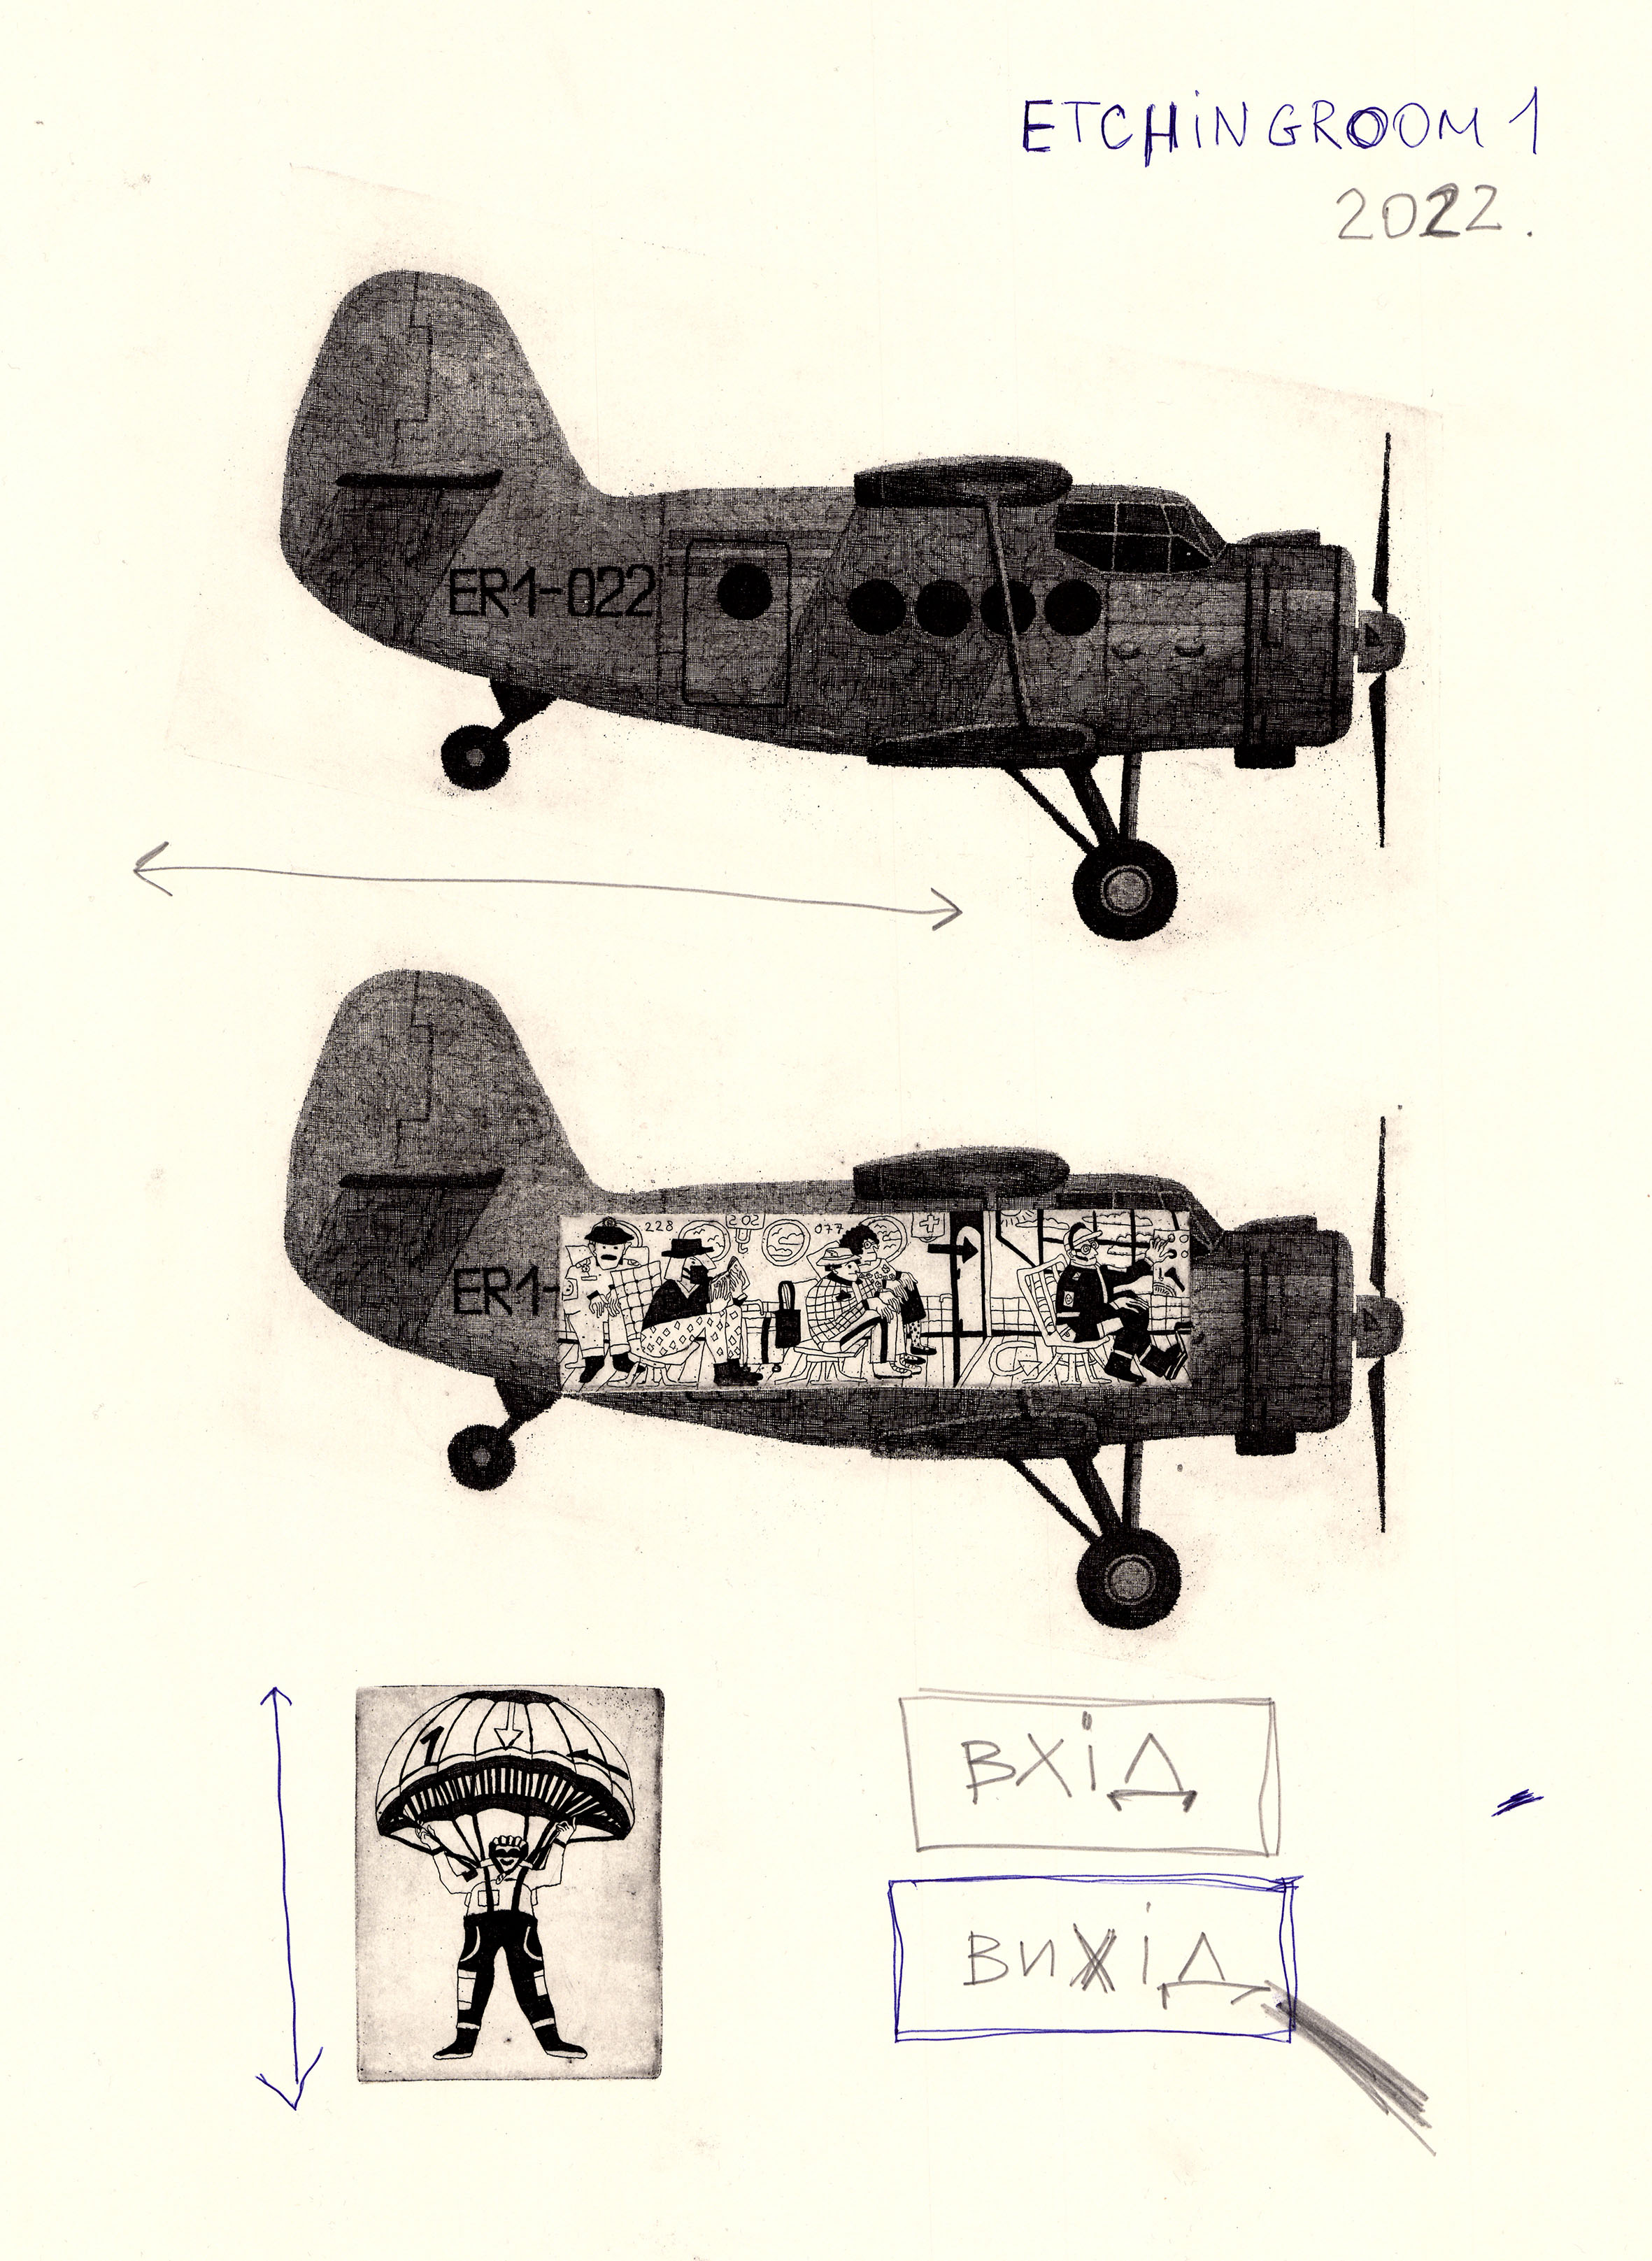 ETCHINGROOM 1
2022.
ER1-022
228
202
077
ER1-
1
ВХІД
ВИХІД